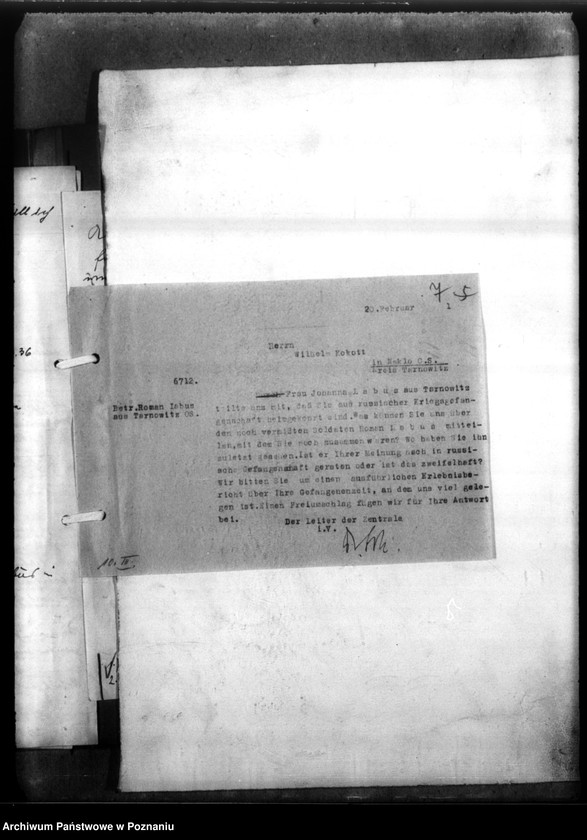 75
20.Februar 1
Herrn
Wilhelm Kokott
in Nakla O.S.
Kreis Tarnowitz
6712.
Betr.Roman Labus
aus Tarnowitz OS.
Frau Johanna L a b u s aus Tarnowitz
teilt uns mit, daß Sie aus russischer Kriegsgefan-
genschaft heimgekehrt sind. Was können Sie uns über
den noch vermißten Soldaten Roman L a b u s mittei-
len, mit dem Sie noch zusammen waren? Wo haben Sie ihn
zuletzt gesehen. Ist er Ihrer Meinung nach in russi-
sche Gefangenschaft geraten oder ist das zweifelhaft?
Wir bitten Sie um einen ausführlichen Erlebnisbe-
richt über Ihre Gefangenenzeit, an dem uns viel gele-
gen ist. Einen Freiumschlag fügen wir für Ihre Antwort
bei.
Der Leiter der Zentrale
i.V.
10. III.
36
Archiwum Państwowe w Poznaniu